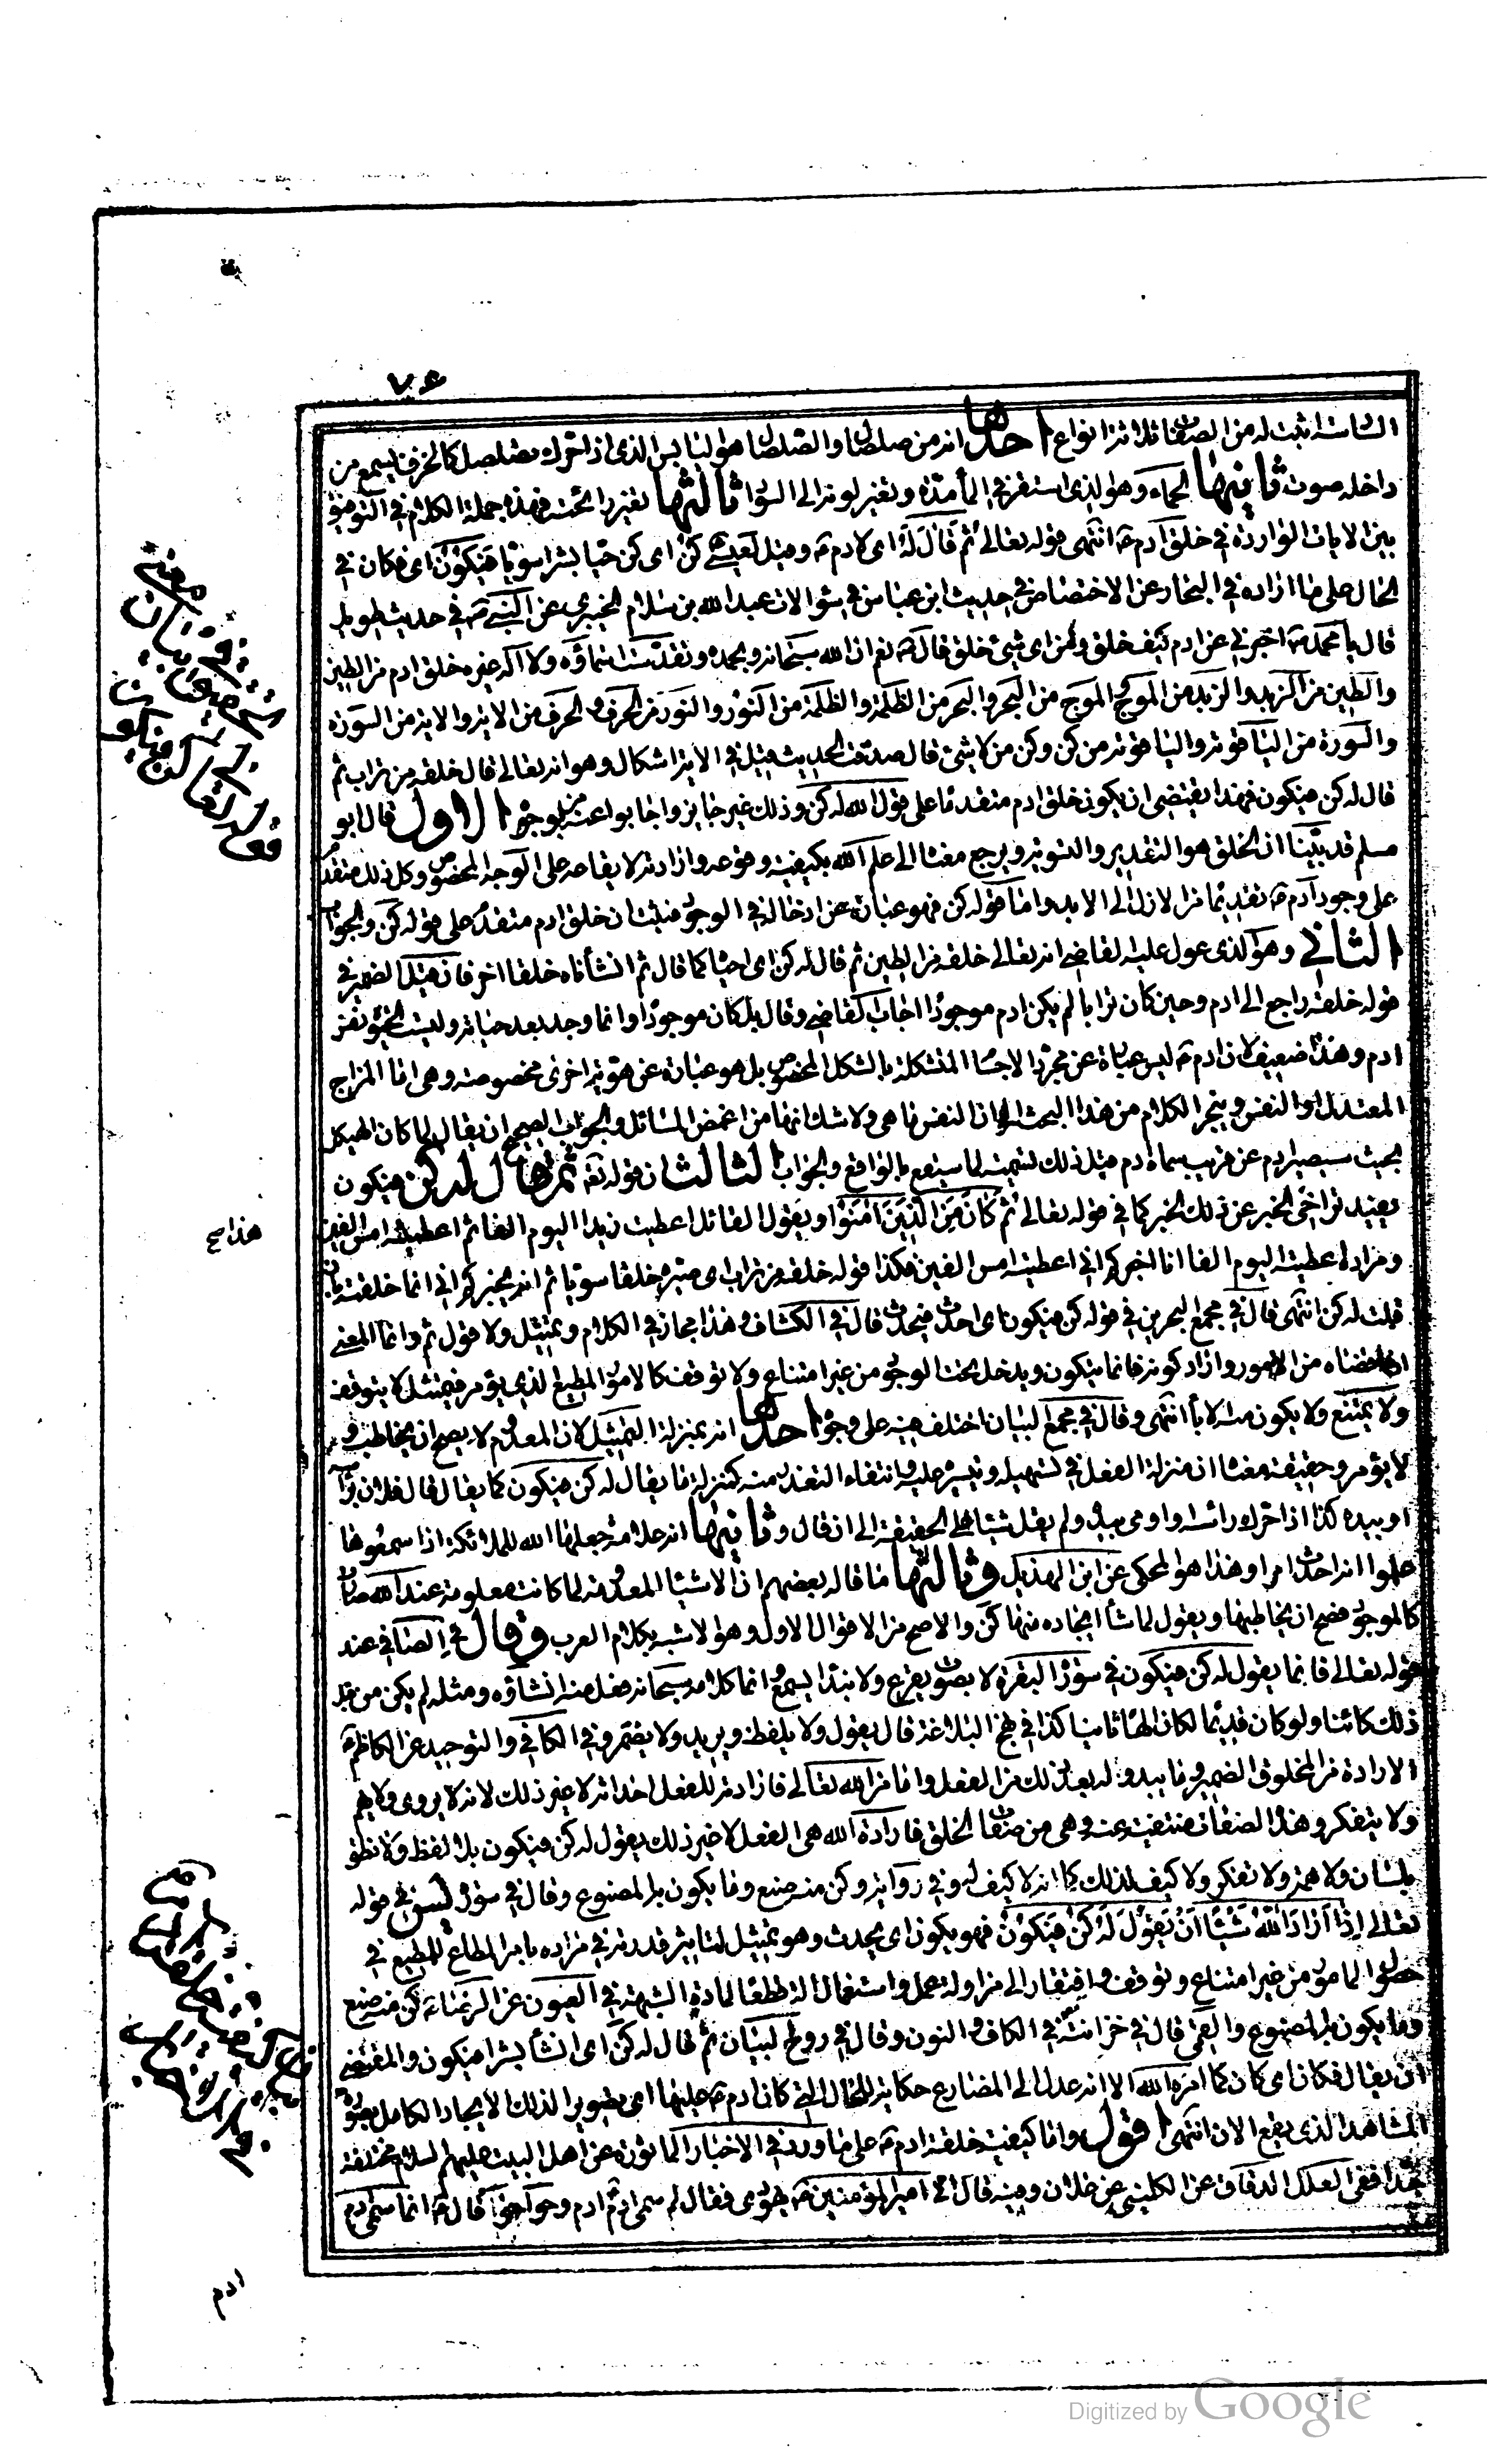 ٧٤
السادسة اثبت له من الصفات ثلاثة انواع احدها انه من صلصال والصلصال هو اليابس الذى اذا حرك تصلصل كالخزف يسمع من
داخله صوت ثانيها الحماء وهو الذى استقر في الماء مدة وتغير لونه الى السواد ثالثها تغير رائحته فهذه جملة الكلام في التوفيق
بين الايات الواردة في خلق آدم انتهى قوله تعالى ثم قال له اى لادم وقيل لعيسى كن اى كن حيا بشرا سويا فيكون اى فكان في
الحال على ما اراده في البحار عن الاختصاص في حديث ابن عباس في سؤالات عبدالله بن سلام الخيبرى عن النبي في حديث طويل
قال يا محمد اخبرني عن ادم كيف خلق ومن اى شئ خلق قال نعم ان الله سبحانه وبحمده وتقدست اسماؤه ولا اله غيره خلق ادم من الطين
والطين من الزبد والزبد من الموج والموج من البحر والبحر من الظلمة والظلمة من النور والنور من الحرف والحرف من الاية والاية من السورة
والسورة من الياقوتة والياقوتة من كن وكن من لا شئ قال صدقت الحديث قيل في الاية اشكال وهو انه تعالى قال خلقه من تراب ثم
قال له كن فيكون فهذا يقتضى ان يكون خلق ادم متقدما على قول الله له كن وذلك غير جايز واجابوا عنه بوجوه الاول قال ابو
مسلم قد بينا ان الخلق هو التقدير والتسوية ويرجع معناه الى علم الله بكيفية وقوعه وارادته لايقاعه على الوجه المخصوص وكل ذلك متقدم
على وجود آدم تقديما من الازل الى الابد واما قوله كن فهو عبارة عن ادخاله في الوجود فثبت ان خلق ادم متقدم على قوله كن والجواب
الثاني وهو الذى عول عليه القاضى انه تعالى خلقه من الطين ثم قال له كن اى احياه كما قال ثم انشأناه خلقا اخر فان قيل الضمير في
قوله خلقه راجع الى ادم وحين كان ترابا لم يكن ادم موجودا اجاب القاضى وقال بل كان موجودا وانما وجد بعد حياته وليست الحيوة نفس
ادم وهذا ضعيف لان ادم ليس عبارة عن مجرد الاجسام المتشكلة بالشكل المخصوص بل هو عبارة عن هوية اخرى مخصوصة وهى اما المزاج
المعتدل او النفس وينجر الكلام من هذا البحث الى ان النفس ما هى ولا شك انها من اغمض المسائل والجواب الصحيح ان يقال لما كان الهيكل
بحيث سيصير ادم عن قريب سماه ادم قبل ذلك تسمية لما سيقع بالواقع والجواب الثالث ان قوله ثم قال له كن فيكون
يفيد تراخى الخبر عن ذلك الخبر كما في قوله تعالى ثم كان من الذين امنوا ويقول القائل اعطيت زيدا اليوم الفا ثم اعطيته امس الفين
ومراده اعطيته اليوم الفا انا اخبركم اني اعطيته امس الفين فكذا قوله خلقه من تراب اى صيره خلقا سويا ثم انه يخبركم اني انما خلقته بان
قلت له كن انتهى قال في مجمع البحرين في قوله كن فيكون اى احدث فيحدث قال في الكشاف وهذا مجاز في الكلام وتمثيل ولا قول ثم وانما المعنى
ان ما قضاه من الامور واراد كونه فانما يتكون ويدخل تحت الوجود من غير امتناع ولا توقف كالامور المطيع الذى يؤمر فيمتثل لا يتوقف
ولا يمتنع ولا يكون منه الاباء انتهى وقال في مجمع البيان اختلف فيه على وجوه احدها انه بمنزلة التمثيل لان المعدوم لا يصح ان يخاطب و
لا يؤمر وحقيقة معناه ان منزلة الفعل في تسهيله وتيسيره عليه وانتفاء التعذر منه كمنزلة ما يقال له كن فيكون كما يقال قال فلان برأسه
او بيده كذا اذا حرك رأسه واومى بيده ولم يقل شيئا على الحقيقة الى ان قال وثانيها انه علامة جعلها الله للملائكة اذا سمعوها
علموا انه احدث امرا وهذا هو المحكى عن ابن الهذيل وثالثها ما قاله بعضهم ان الاشياء المعدومة لما كانت معلومة عند الله صارت
كالموجود فصح ان يخاطبها ويقول لما شاء ايجاده منها كن والاصح من الاقوال الاول وهو الاشبه بكلام العرب وقال في الصافي عند
قوله تعالى فانما يقول له كن فيكون في سورة البقرة لا بصوت يقرع ولا بنداء يسمع وانما كلامه سبحانه فعل منه انشاؤه ومثله لم يكن من قبل
ذلك كائنا ولو كان قديما لكان الها ثانيا كذا في نهج البلاغة قال يقول ولا يلفظ ويريد ولا يضمر وفي الكافي والتوحيد عن الكاظم
الارادة من المخلوق الضمير وما يبدو له بعد ذلك من الفعل واما من الله تعالى فارادته للفعل احداثه لا غير ذلك لانه لا يروى ولا يهم
ولا يتفكر وهذه الصفات منتفية عنه وهى من صفات الخلق فارادة الله هى الفعل لا غير ذلك يقول له كن فيكون بلا لفظ ولا نطق
بلسان ولا همة ولا تفكر ولا كيف لذلك كما انه لا كيف له وفي رواية وكن منه صنع وما يكون به المصنوع وقال في سورة يس في قوله
تعالى اذا اراد الله شيئا ان يقول له كن فيكون فهو يكون اى يحدث وهو تمثيل لتاثير قدرته في مراده بامر المطاع للمطيع في
حصول المامور من غير امتناع وتوقف وافتقار الى مزاولة عمل واستعمال آلة قطعا لمادة الشبهة في العيون عن الرضا كن منه صنع
وما يكون به المصنوع والقمى قال في خزائنه في الكاف والنون وقال في روح البيان ثم قال له كن اى انشأ بشرا فيكون والمقتضى
ان يقال فكان اى كان كما امره الله الا انه عدل الى المضارع حكاية للحال التى كان ادم عليها اى تصويرا لذلك الايجاد الكامل بصورة
المشاهد الذى يقع الان انتهى اقول واما كيفية خلقة ادم على ما ورد في الاخبار الماثورة عن اهل البيت عليهم السلام مختلفة
جدا ففي العلل الدقاق عن الكليني عن علان وفيه قال اتى امير المؤمنين يهودى فقال لم سمى ادم ادم وحوا حوا قال انما سمى ادم
هذا صح
ادم
Digitized by Google